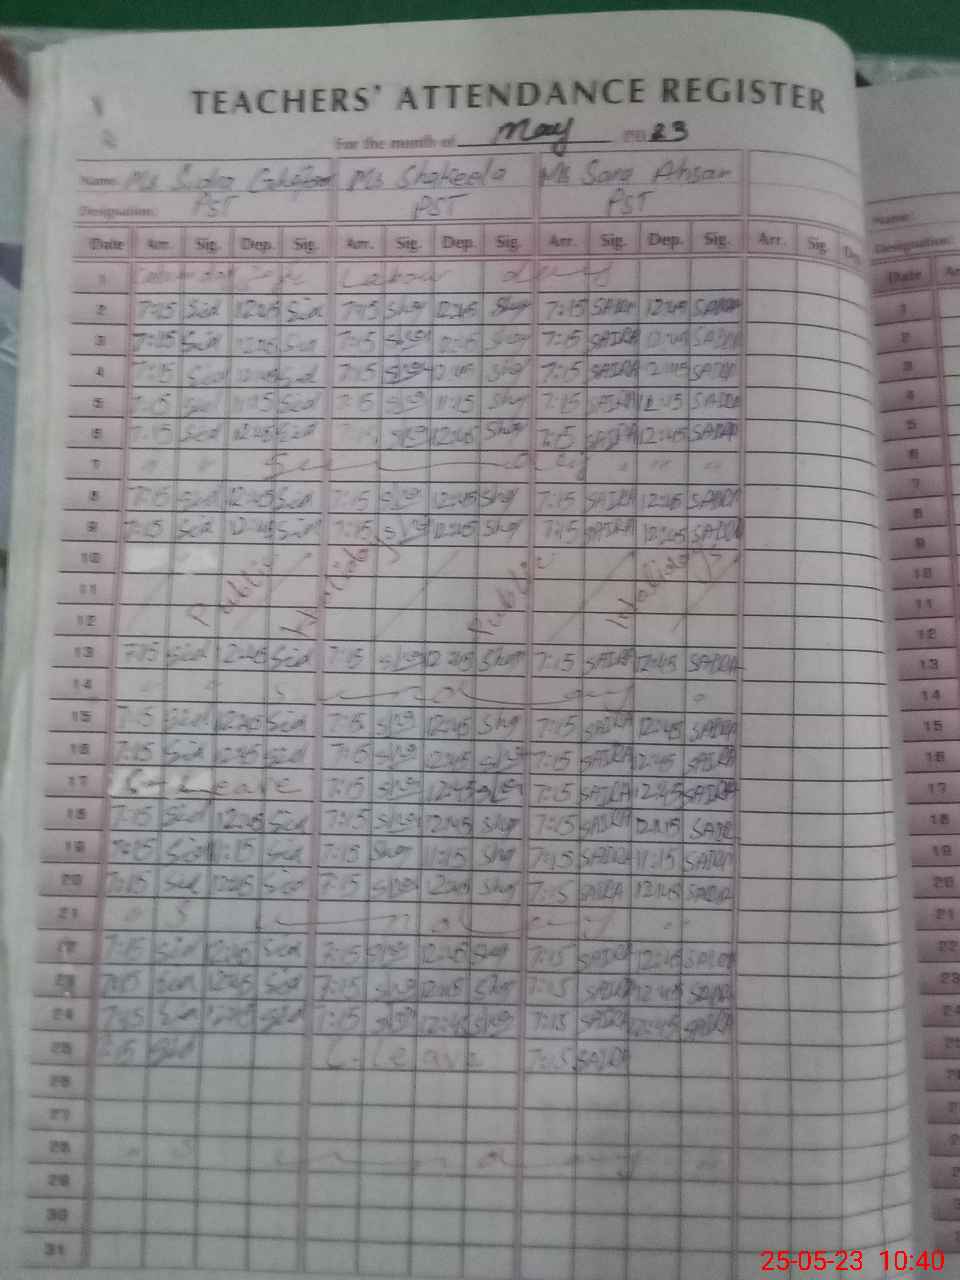 TEACHERS' ATTENDANCE REGISTER
For the month of May 2023
Name: Ms Sidra Ms Shakeela Ms Sara Ahsan
Designation: PST PST PST
Date Arr. Sig. Dep. Sig. Arr. Sig. Dep. Sig. Arr. Sig. Dep. Sig. Arr. Sig. Dep.
1 Labour day
2 7:15 Sid 12:45 Sid 7:15 Shg 12:45 Shg 7:15 SAIRA 12:45 SAIRA
3 7:15 Sid 12:45 Sid 7:15 Shg 12:45 Shg 7:15 SAIRA 12:45 SAIRA
4 7:15 Sid 12:45 Sid 7:15 Shg 12:45 Shg 7:15 SAIRA 12:45 SAIRA
5 7:15 Sid 11:15 Sid 7:15 Shg 11:15 Shg 7:15 SAIRA 11:15 SAIRA
6 7:15 Sid 12:45 Sid Shg 12:45 Shg 7:15 SAIRA 12:45 SAIRA
7 Sunday
8 7:15 Sid 12:45 Sid 7:15 Shg 12:45 Shg 7:15 SAIRA 12:45 SAIRA
9 7:15 Sid 12:45 Sid 7:15 Shg 12:45 Shg 7:15 SAIRA 12:45 SAIRA
10
11 Public Holidays Public Holidays
12
13 7:15 Sid 12:45 Sid 7:15 Shg 12:45 Shg 7:15 SAIRA 12:45 SAIRA
14 Sunday
15 7:15 Sid 12:45 Sid 7:15 Shg 12:45 Shg 7:15 SAIRA 12:45 SAIRA
16 7:15 Sid 12:45 Sid 7:15 Shg 12:45 Shg 7:15 SAIRA 12:45 SAIRA
17 Leave 7:15 Shg 12:45 Shg 7:15 SAIRA 12:45 SAIRA
18 7:15 Sid 12:45 Sid 7:15 Shg 12:45 Shg 7:15 SAIRA 12:45 SAIRA
19 7:15 Sid 11:15 Sid 7:15 Shg 11:15 Shg 7:15 SAIRA 11:15 SAIRA
20 7:15 Sid 12:45 Sid 7:15 Shg 12:45 Shg 7:15 SAIRA 12:45 SAIRA
21 Sunday
22 7:15 Sid 12:45 Sid 7:15 Shg 12:45 Shg 7:15 SAIRA 12:45 SAIRA
23 7:15 Sid 12:45 Sid 7:15 Shg 12:45 Shg 7:15 SAIRA 12:45 SAIRA
24 7:15 Sid 12:45 Sid 7:15 Shg 12:45 Shg 7:15 SAIRA 12:45 SAIRA
25 7:15 Sid C-Leave 7:15 SAIRA
26
27
28 Sunday
29
30
31
Name:
Designation:
Date
1
2
3
4
5
6
7
8
9
10
11
12
13
14
15
16
17
18
19
20
21
22
23
24
25-05-23 10:40